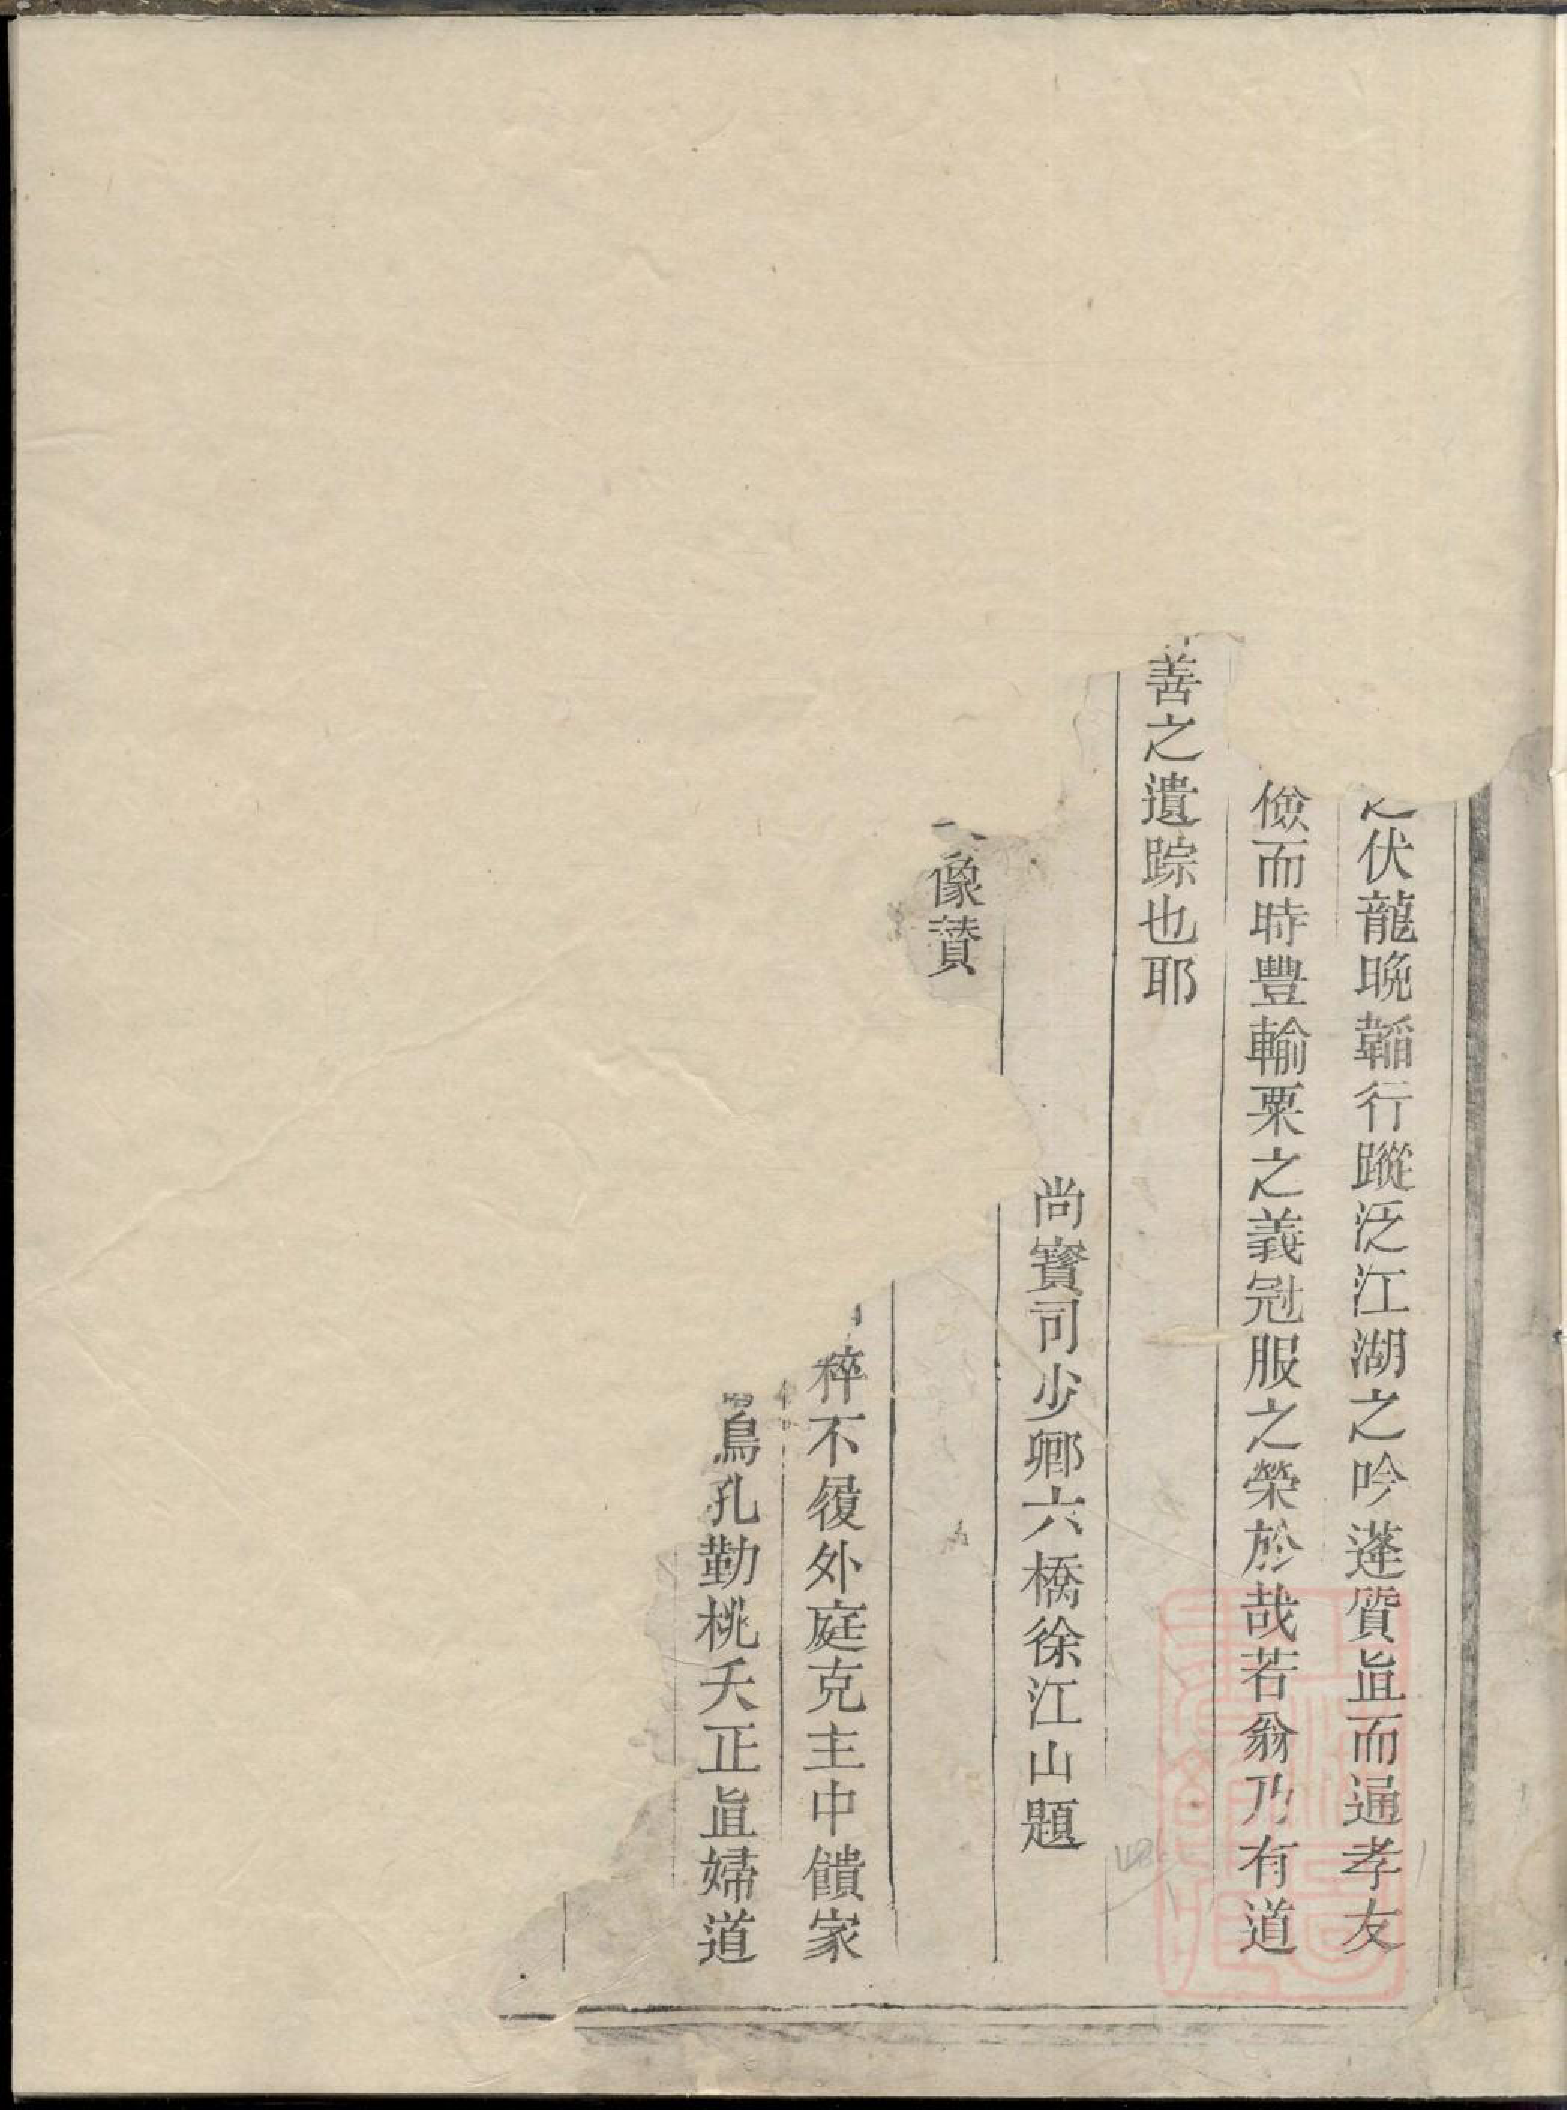 之伏龍晩韜行蹤泛江湖之吟蓬質眞而通孝友
儉而時豐輸粟之義冠服之榮於哉若翁乃有道
善之遺踪也耶
尚寳司少卿六橋徐江山題
像賛
粹不履外庭克主中饋家
鳥孔勤桃夭正眞婦道